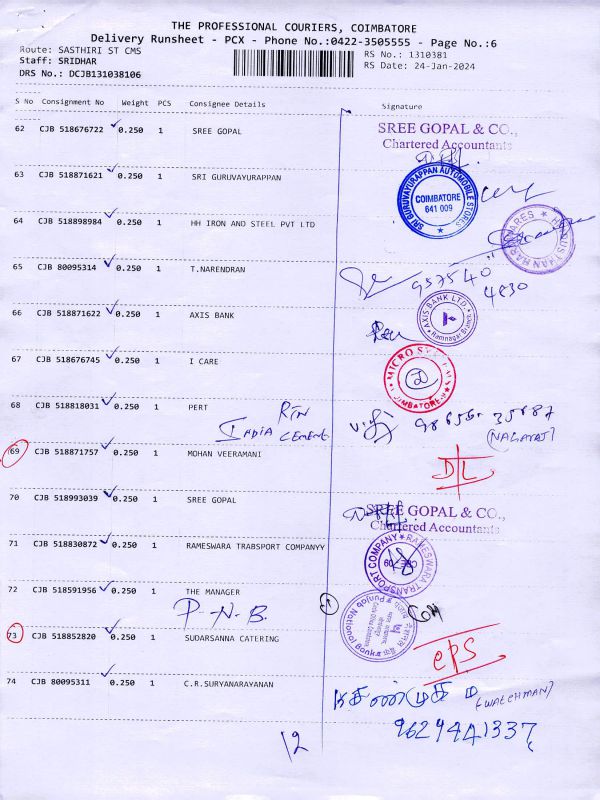 THE PROFESSIONAL COURIERS, COIMBATORE
Delivery Runsheet - PCX - Phone No.:0422-3505555 - Page No.:6
Route: SASTHIRI ST CMS
RS No.: 1310381
Staff: SRIDHAR
RS Date: 24-Jan-2024
DRS No.: DCJB131038106
S No Consignment No Weight PCS Consignee Details Signature
62 CJB 518676722 0.250 1 SREE GOPAL
SREE GOPAL & CO.,
Chartered Accountants
63 CJB 518871621 0.250 1 SRI GURUVAYURAPPAN
SRI GURUVAYURAPPAN AUTOMOBILE STORES
COIMBATORE
641 009
64 CJB 518898984 0.250 1 HH IRON AND STEEL PVT LTD
65 CJB 80095314 0.250 1 T.NARENDRAN
957540
4830
66 CJB 518871622 0.250 1 AXIS BANK
AXIS BANK LTD.
Ramnagar Branch
67 CJB 518676745 0.250 1 I CARE
68 CJB 518818031 0.250 1 PERT
INDIA CEMENT
35887
(NAGARAJ)
69 CJB 518871757 0.250 1 MOHAN VEERAMANI
D/L
70 CJB 518993039 0.250 1 SREE GOPAL
SREE GOPAL & CO.,
Chartered Accountants
71 CJB 518830872 0.250 1 RAMESWARA TRABSPORT COMPANYY
RAMESWARA TRANSPORT COMPANY
CBE 09
72 CJB 518591956 0.250 1 THE MANAGER
P.N.B.
Punjab National Bank
73 CJB 518852820 0.250 1 SUDARSANNA CATERING
CPS
74 CJB 80095311 0.250 1 C.R.SURYANARAYANAN
(WATCHMAN)
9629441337
12